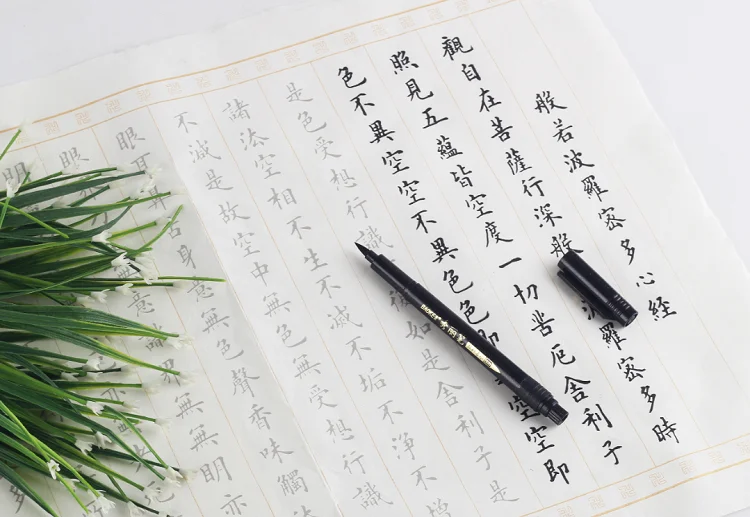 般若波羅密多心經
觀自在菩薩行深般波羅密多時
照見五蘊皆空度一切苦厄舍利子
色不異空空不異色色即空空即
是色受想行識復如是舍利子是
諸法空相不生不滅不垢不淨不增
不減是故空中無色無受想行識
眼耳舌身意無色聲香味觸法
眼界意識界無無明亦
明